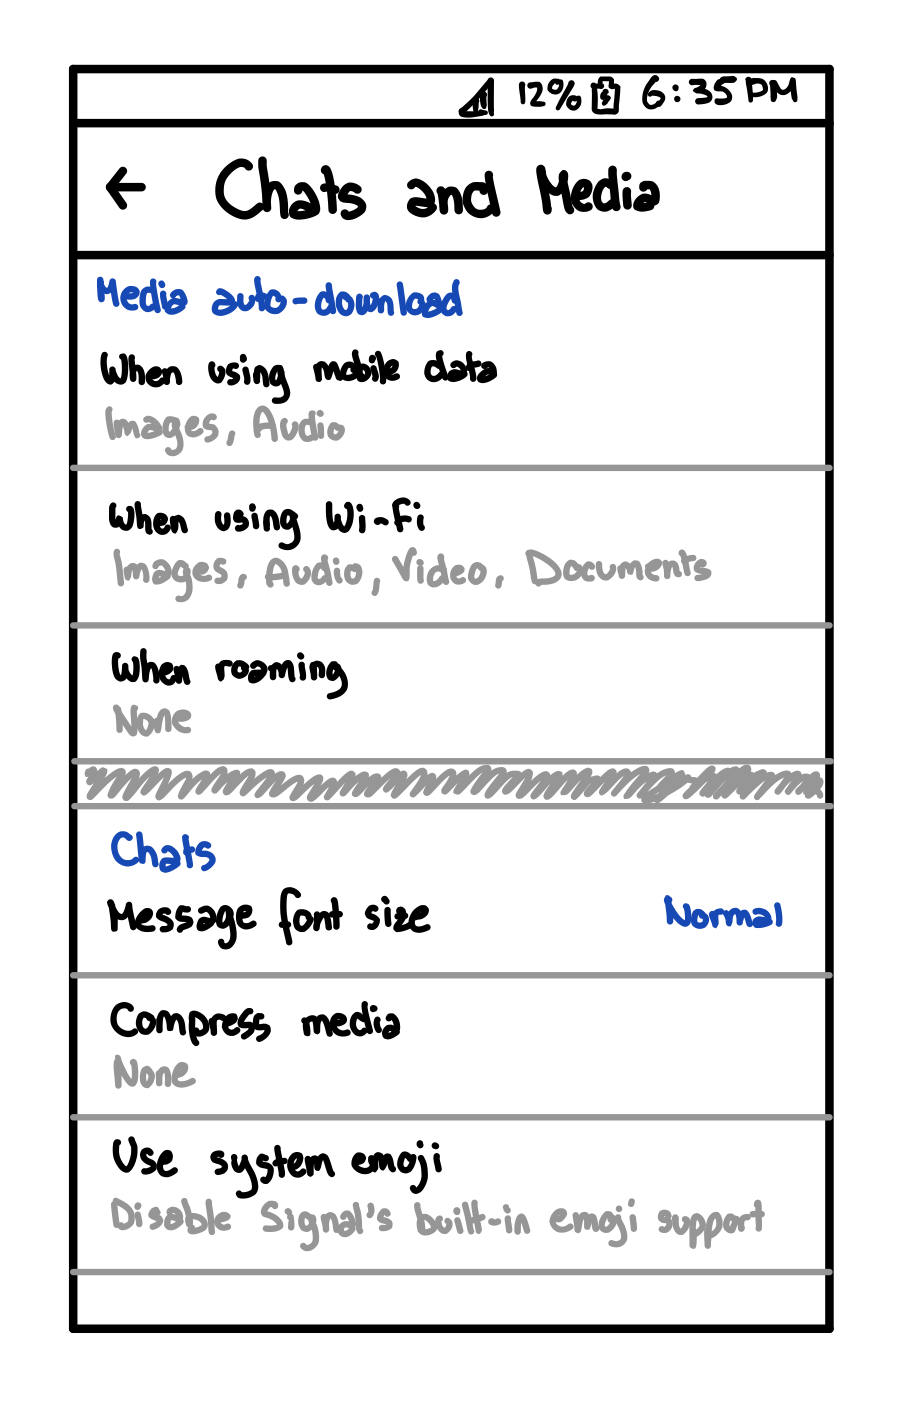 12% 6:35 PM
← Chats and Media
Media auto-download
When using mobile data
Images, Audio
When using Wi-Fi
Images, Audio, Video, Documents
When roaming
None
Chats
Message font size Normal
Compress media
None
Use system emoji
Disable Signal's built-in emoji support